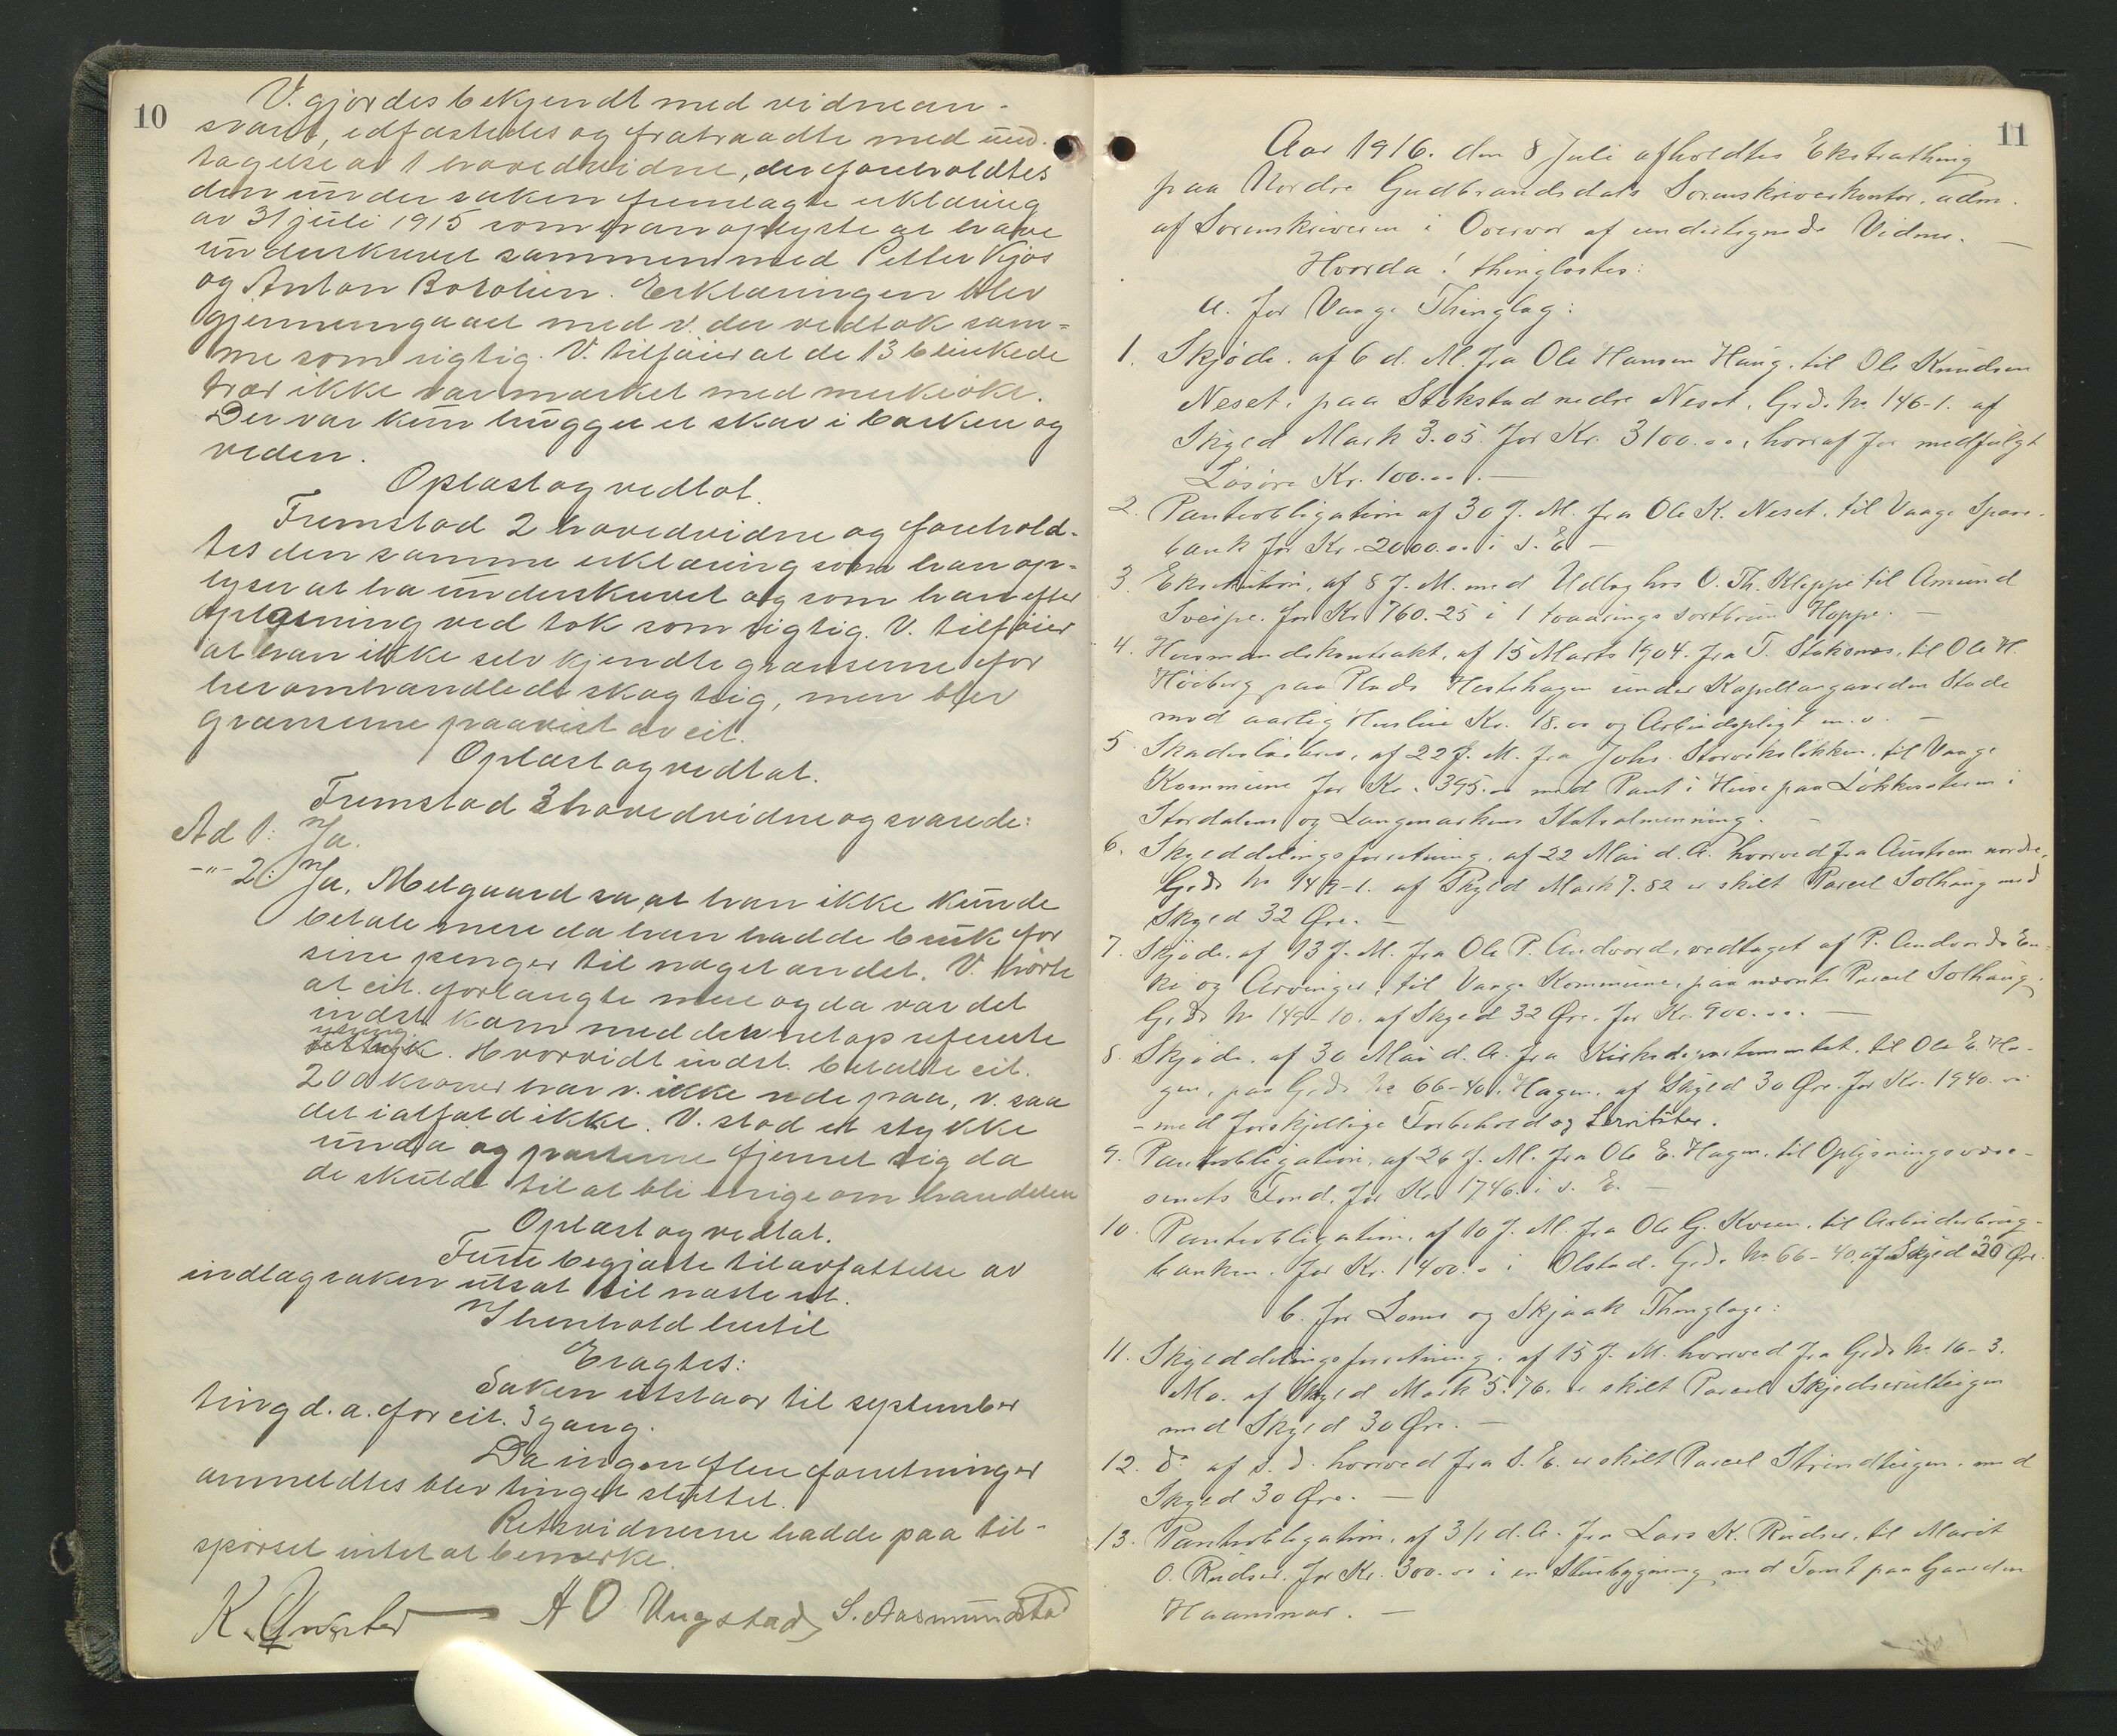 10
V. gjordes bekjendt med vidnean-
svaret, edfæstedes og fratraadte med und-
tagelse av 1 hovedvidne, der foreholdtes
den under saken fremlagte erklæring
av 31 juli 1915 som han oplyste at have
underskrevet sammen med Petter Kjøs
og Anton Bakslien. Erklæringen blev
gjennemgaaet med v. der vedtok sam-
me som rigtig. V. tilføier at de 13 blinkede
trær ikke var merket med merkeøks.
Der var kun hugget et skar i barken og
veden.
Oplæst og vedtat.
Fremstod 2 hovedvidne og forehold-
tes den samme erklæring som han op-
lyser at ha underskrevet og som han efter
oplæsning ved tok som rigtig. V. tilføier
at han ikke selv kjendte grænserne for
heromhandlede skogteig, men blev
grænserne paavist av cit.
Oplæst og vedtat.
Fremstod 3 hovedvidne og svarede:
Ad 1: Ja.
-"- 2: Ja, Melgaard sa, at han ikke kunde
betale mere da han hadde bruk for
sine penger til noget andet. V. hørte
at cit. forlangte mere og da var det
indst. kom med den netop refererte
ytring. Hvorvidt indst. betalte cit.
200 kroner har v. ikke rede paa, v. saa
det ialfald ikke. V. stod et stykke
unda og parterne fjernet sig da
de skulde til at bli enige om handelen
Oplæst og vedtat.
Furu begjærte til avfattelse av
indlæg saken utsat til næste ret.
I henhold hertil
Eragtes:
Saken utstaar til september
ting d. a. for cit. 3 gang.
Da ingen flere forretninger
anmeldtes blev tinget sluttet.
Retsvidnerne hadde paa til-
spørsel intet at bemerke.
K. A O Ungstad, S. Aasmundstad
11
Aar 1916. den 8 Juli afholdtes Ekstrathing
paa Nordre Gudbrandsdals Sorenskriverkontor, adm.
af Sorenskriveren i Overvær af undertegnede Vidner. —
Hvorda! thinglæstes:
a. for Vaage Thinglag:
1. Skjøde. af 6 d. M. fra Ole Hansen Haug. til Ole Knudsen
Neset, paa Stokstad nedre Neset, Grds. No. 146-1. af
Skyld Mark 3.05. for Kr. 3100.00, hvoraf for medfulgt
Løsøre Kr. 100.00. —
2. Panteobligation af 30 f. M. fra Ole K. Neset. til Vaage Spare-
bank for Kr. 2000.00 i s. E. —
3. Eksekution, af 8 f. M. med Udlæg hos O. Th. Kleppe til Amund
Sveipe. for Kr. 760.25 i 1 toaarings sortbrun Hoppe. —
4. Husmandskontrakt, af 15 Marts 1904. fra T. Stoknes, til Ole H.
Høiberg paa Plads Hestehagen under Kapellangaarden Stade
mod aarlig Husleie Kr. 18.00 og Arbeidspligt m. v. —
5. Skadesløsbrev, af 22 f. M. fra Johs. Storviksløkken, til Vaage
Kommune for Kr. 395.00 med Pant i Huse paa Løkkesæteren i
Stordalens og Langmorkens Statsalmenning. —
6. Skylddelingsforretning, af 22 Mai d. A. hvorved fra Austrem nordre,
Grds No 149-1. af Skyld Mark 7.82 er skilt Parcel Solhaug med
Skyld 32 Øre. —
7. Skjøde. af 13 f. M. fra Ole P. Andvord, vedtaget af P. Andvords En-
ke og Arvinger, til Vaage Kommune, paa nævnte Parcel Solhaug,
Grds No 149-10. af Skyld 32 Øre. for Kr. 900.00. —
8. Skjøde. af 30 Mai d. A. fra Kirkedepartementet. til Ole E. Ha-
gen, paa Grds No 66-40. Hagen, af Skyld 30 Øre. for Kr. 1940.00
- med forskjellige Forbehold og Servitter.
9. Panteobligation, af 26 f. M. fra Ole E. Hagen, til Oplysningsvæse-
senets Fond, for Kr. 1746. i s. E. —
10. Panteobligation, af 10 f. M. fra Ole G. Kveen, til Arbeiderbrug-
banken. for Kr. 1400.00 i Olstad. Grds No 66-40. af Skyld 20 Øre.
b. for Loms og Skjaak Thinglage:
11. Skylddelingsforretning, af 15 f. M. hvorved fra Grds No. 16-3.
Mo. af Skyld Mark 5.76. er skilt Parcel
med Skyld 30 Øre. —
12. do af s. d. hvorved fra s. E. er skilt Parcel Strindteigen, med
Skyld 30 Øre. —
13. Panteobligation, af 3/1 d. A. fra Lars K. Rudser, til Marit
O. Rudser. for Kr. 300.00 i en Stuebygning med Tomt paa Gaarden
Haamnar. —